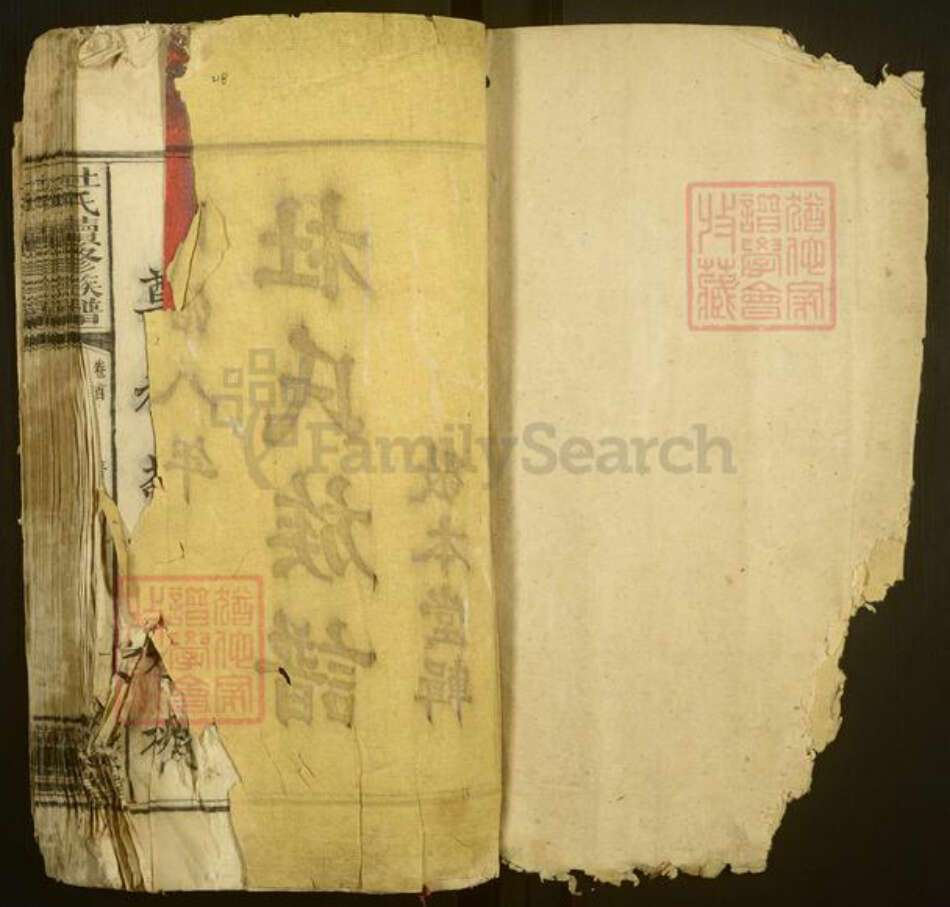 猶他家
譜學會
收藏
敦本堂輯
杜氏族譜
八年
猶他家
譜學會
收藏
杜氏續修族譜
卷首
48
FamilySearch